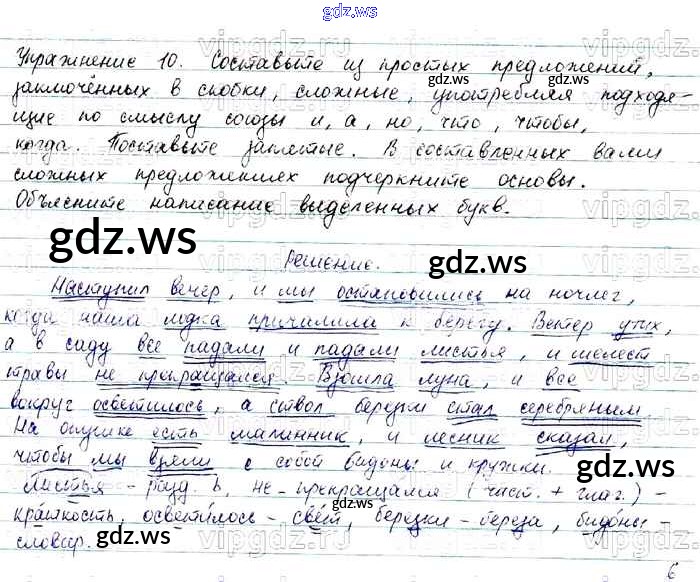 gdz.ws
Упражнение 10. Составьте из простых предложений,
заключённых в скобки, сложные, употребляя подходя-
щие по смыслу союзы и, а, но, что, чтобы,
когда. Поставьте запятые. В составленных вами
сложных предложениях подчеркните основы.
Объясните написание выделенных букв.
gdz.ws
Решение.
Наступил вечер, и мы остановились на ночлег,
когда наша лодка причалила к берегу. Ветер утих,
а в саду все падали и падали листья, и шелест
травы не прекращался. Взошла луна, и все
вокруг осветилось, а ствол березки стал серебряным
На опушке есть малинник, и лесник сказал,
чтобы мы взяли с собой бидоны и кружки.
Листья - разд. ь, не-прекращался (част. + глаг.) -
краткость, осветилось - свет, березки - береза, бидоны -
словар.
gdz.ws
6